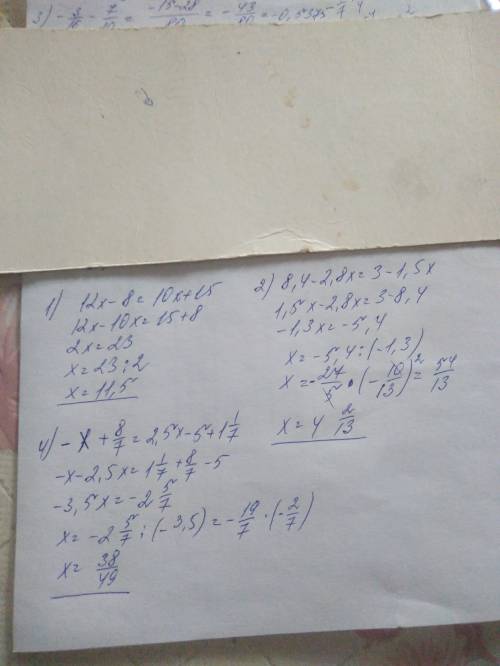 3) -3/8 - 7/10 = -15-28/80 = -43/80 = -0,5375
1) 12x-8=10x+15
12x-10x=15+8
2x=23
x=23:2
x=11,5
2) 8,4-2,8x=3-1,5x
1,5x-2,8x=3-8,4
-1,3x=-5,4
x=-5,4:(-1,3)
x=-27/5•(-10/13)²=54/13
x=4 2/13
4) -x+8/7=2,5x-5+1 1/7
-x-2,5x=1 1/7+8/7-5
-3,5x=-2 5/7
x=-2 5/7:(-3,5)=-19/7·(-2/7)
x=38/49